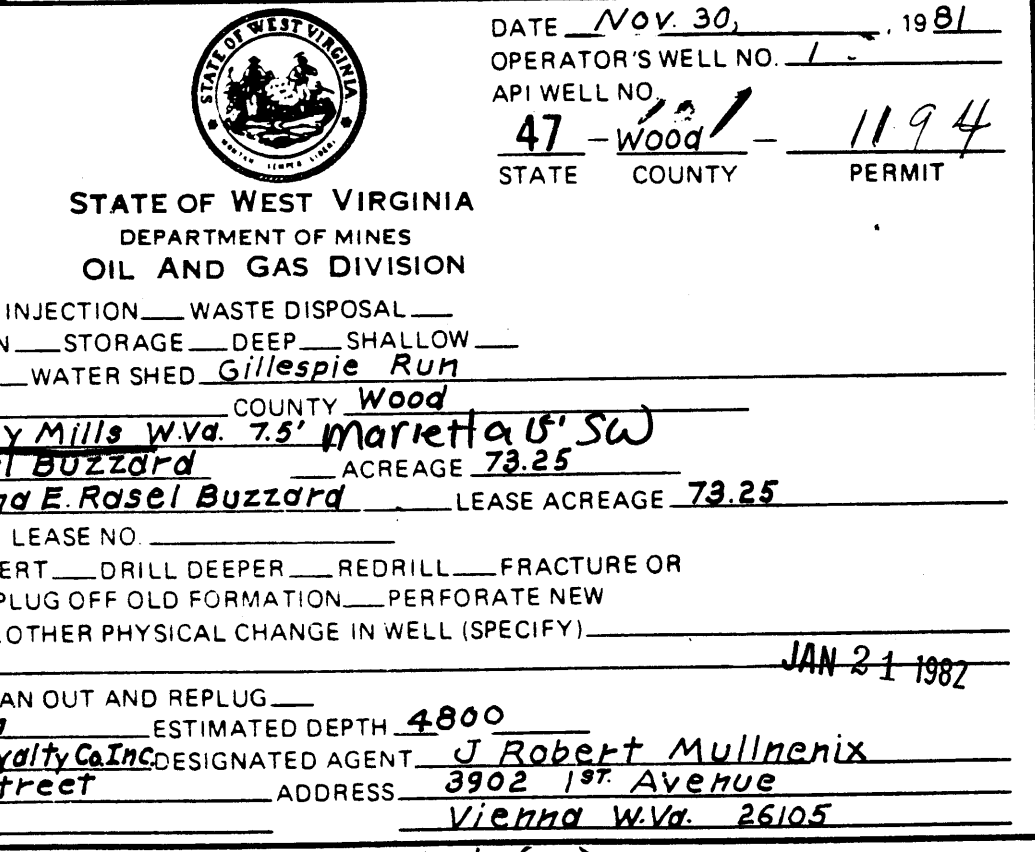 STATE OF WEST VIRGINIA
MONTANI SEMPER LIBERI
DATE Nov. 30, , 1981
OPERATOR'S WELL NO. 1
API WELL NO.
47 - Wood - 1194
STATE COUNTY PERMIT
STATE OF WEST VIRGINIA
DEPARTMENT OF MINES
OIL AND GAS DIVISION
INJECTION WASTE DISPOSAL
N STORAGE DEEP SHALLOW
WATER SHED Gillespie Run
COUNTY Wood
y Mills W.Va. 7.5' Marietta 15' SW
l Buzzard ACREAGE 73.25
na E. Rasel Buzzard LEASE ACREAGE 73.25
LEASE NO.
ERT DRILL DEEPER REDRILL FRACTURE OR
PLUG OFF OLD FORMATION PERFORATE NEW
OTHER PHYSICAL CHANGE IN WELL (SPECIFY)
JAN 21 1982
AN OUT AND REPLUG
ESTIMATED DEPTH 4800
yalty Co. Inc. DESIGNATED AGENT J Robert Mullnenix
treet ADDRESS 3902 1ST. Avenue
Vienna W.Va. 26105